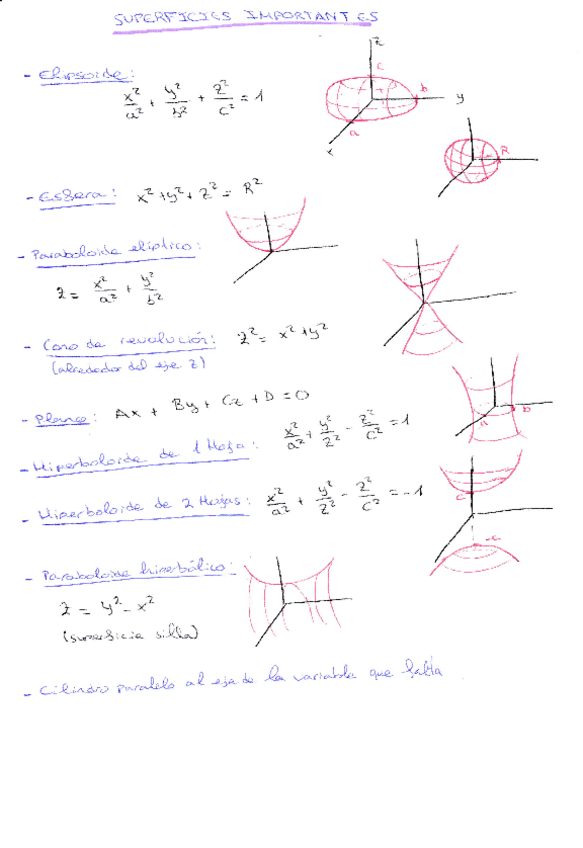 SUPERFICIES IMPORTANTES
- Elipsoide:
x²/a² + y²/b² + z²/c² = 1
z
c
b
y
a
x
R
- Esfera: x² + y² + z² = R²
- Paraboloide elíptico:
z = x²/a² + y²/b²
- Cono de revolución: z² = x² + y²
(alrededor del eje z)
- Plano: Ax + By + Cz + D = 0
a
b
- Hiperboloide de 1 Hoja: x²/a² + y²/z² - z²/c² = 1
- Hiperboloide de 2 Hojas: x²/a² + y²/z² - z²/c² = -1
c
-c
- Paraboloide hiperbólico:
z = y² - x²
(superficie silla)
- Cilindro paralelo al eje de la variable que falta